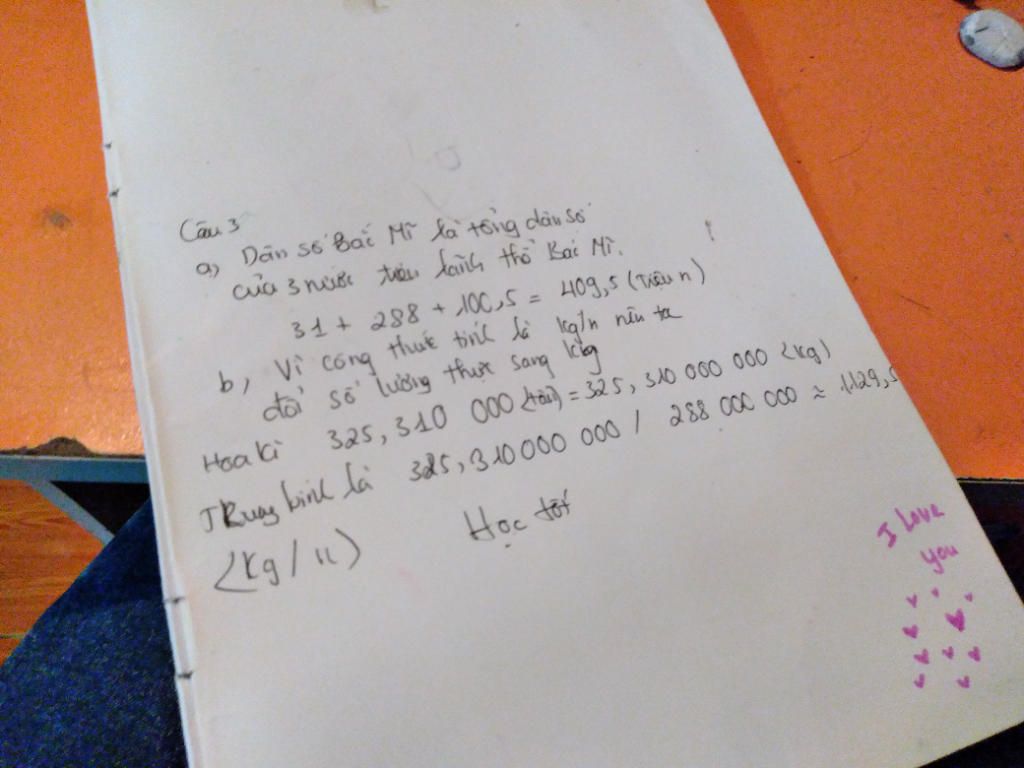 Câu 3
a, Dân số Bắc Mĩ là tổng dân số
của 3 nước trên lãnh thổ Bắc Mĩ.
31 + 288 + 100,5 = 409,5 (Triệu n)
b, Vì công thức tính là kg/n nên ta
đổi số lương thực sang kg
Hoa kì 325,310 000 (tấn) = 325,310 000 000 (kg)
Trung bình là 325,310 000 000 / 288 000 000 ≈ 1129,5
(kg/n)
Học tốt
I love
you